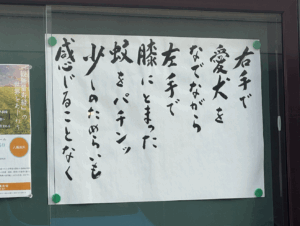 右手で
愛犬を
なでながら
左手で
膝にとまった
蚊をパチンッ
少しのためらいも
感じることなく